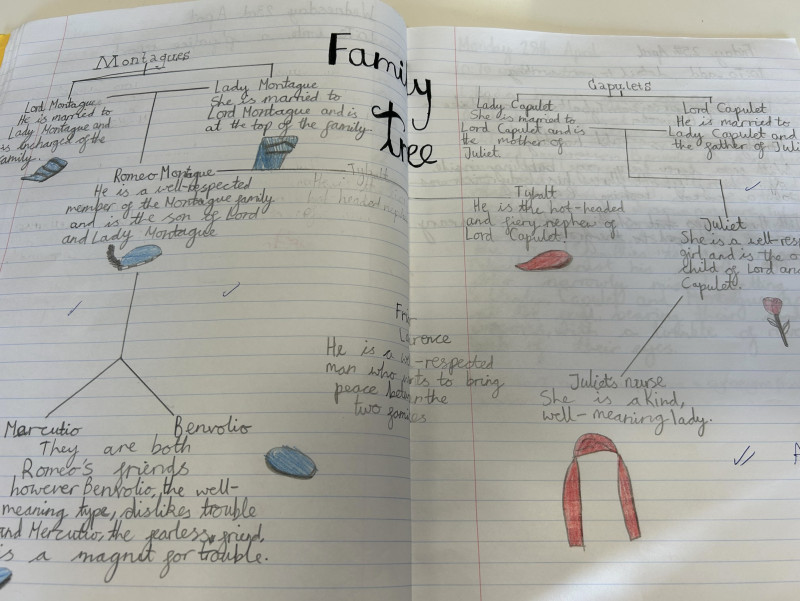 Family
tree
Montagues
Lord Montague
He is married to
Lady Montague and
is incharge of the
family.
Lady Montague
She is married to
Lord Montague and is
at the top of the family.
Romeo Montague
He is a well-respected
member of the Montague family
and is the son of Lord
and Lady Montague
Mercutio
Benvolio
They are both
Romeo's friends
however Benvolio, the well-
meaning type, dislikes trouble
and Mercutio, the fearless friend,
is a magnet for trouble.
Friar
Larence
He is a well-respected
man who wants to bring
peace between the
two families
Capulets
Lady Capulet
She is married to
Lord Capulet and is
the mother of
Juliet.
Lord Capulet
He is married to
Lady Capulet and
the father of Juli
Tybalt
He is the hot-headed
and fiery nephew of
Lord Capulet!
Juliet
She is a well-res
girl and is the o
child of Lord and
Capulet.
Juliet's nurse
She is a kind,
well-meaning lady.